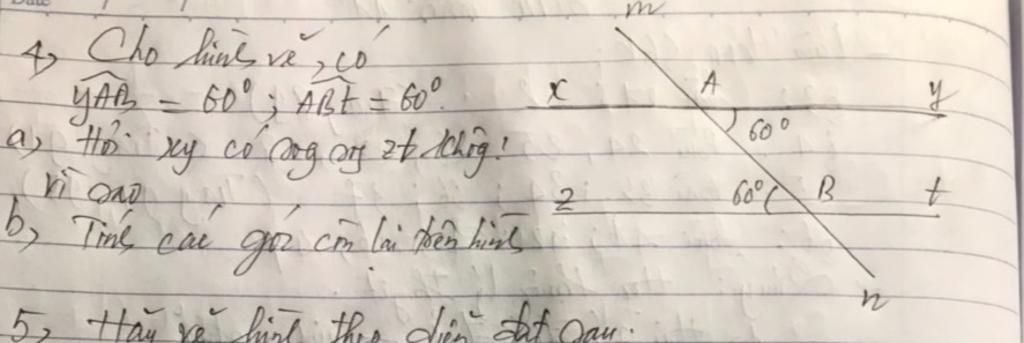 m
4, Cho hình vẽ, có
yAB = 60°; ABt = 60°.
x A y
60°
a, Hỏi xy có song song zt không!
vì sao
z 60° B t
b, Tính các góc còn lại trên hình
n
5, Hãy vẽ hình theo diễn đạt sau: